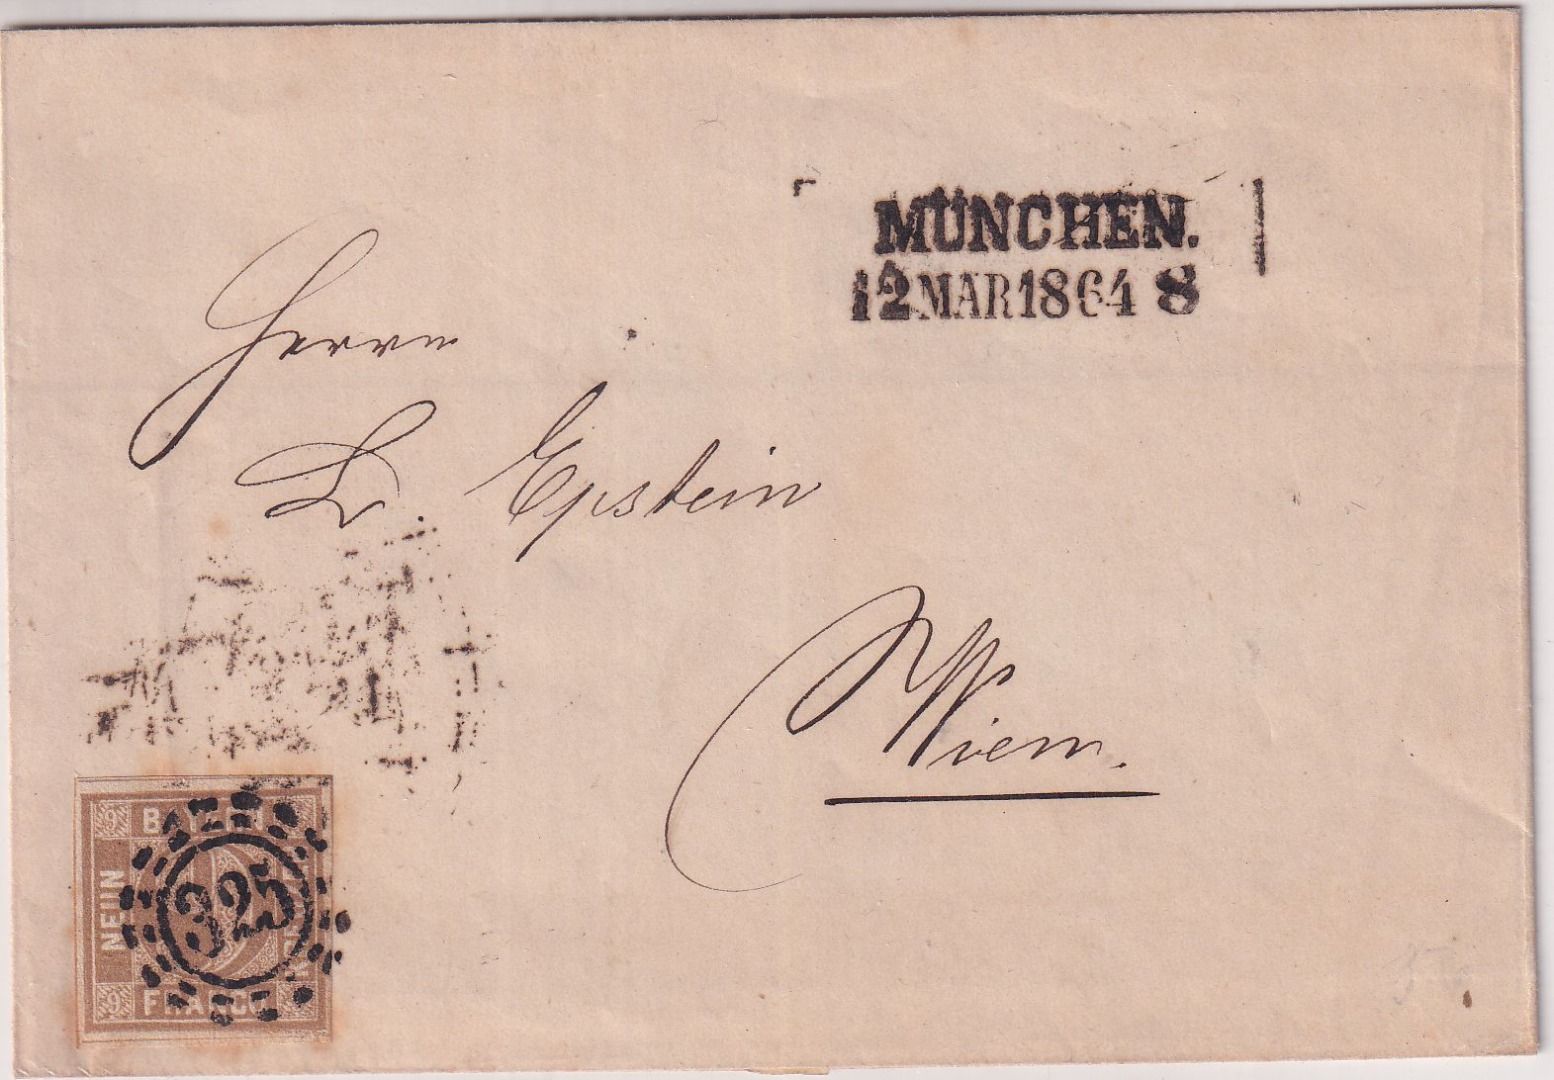 MÜNCHEN.
12 MAR 1864 8
Herrn
L. Epstein
Wien.
9 BAYERN
NEUN
325
9 FRANCO